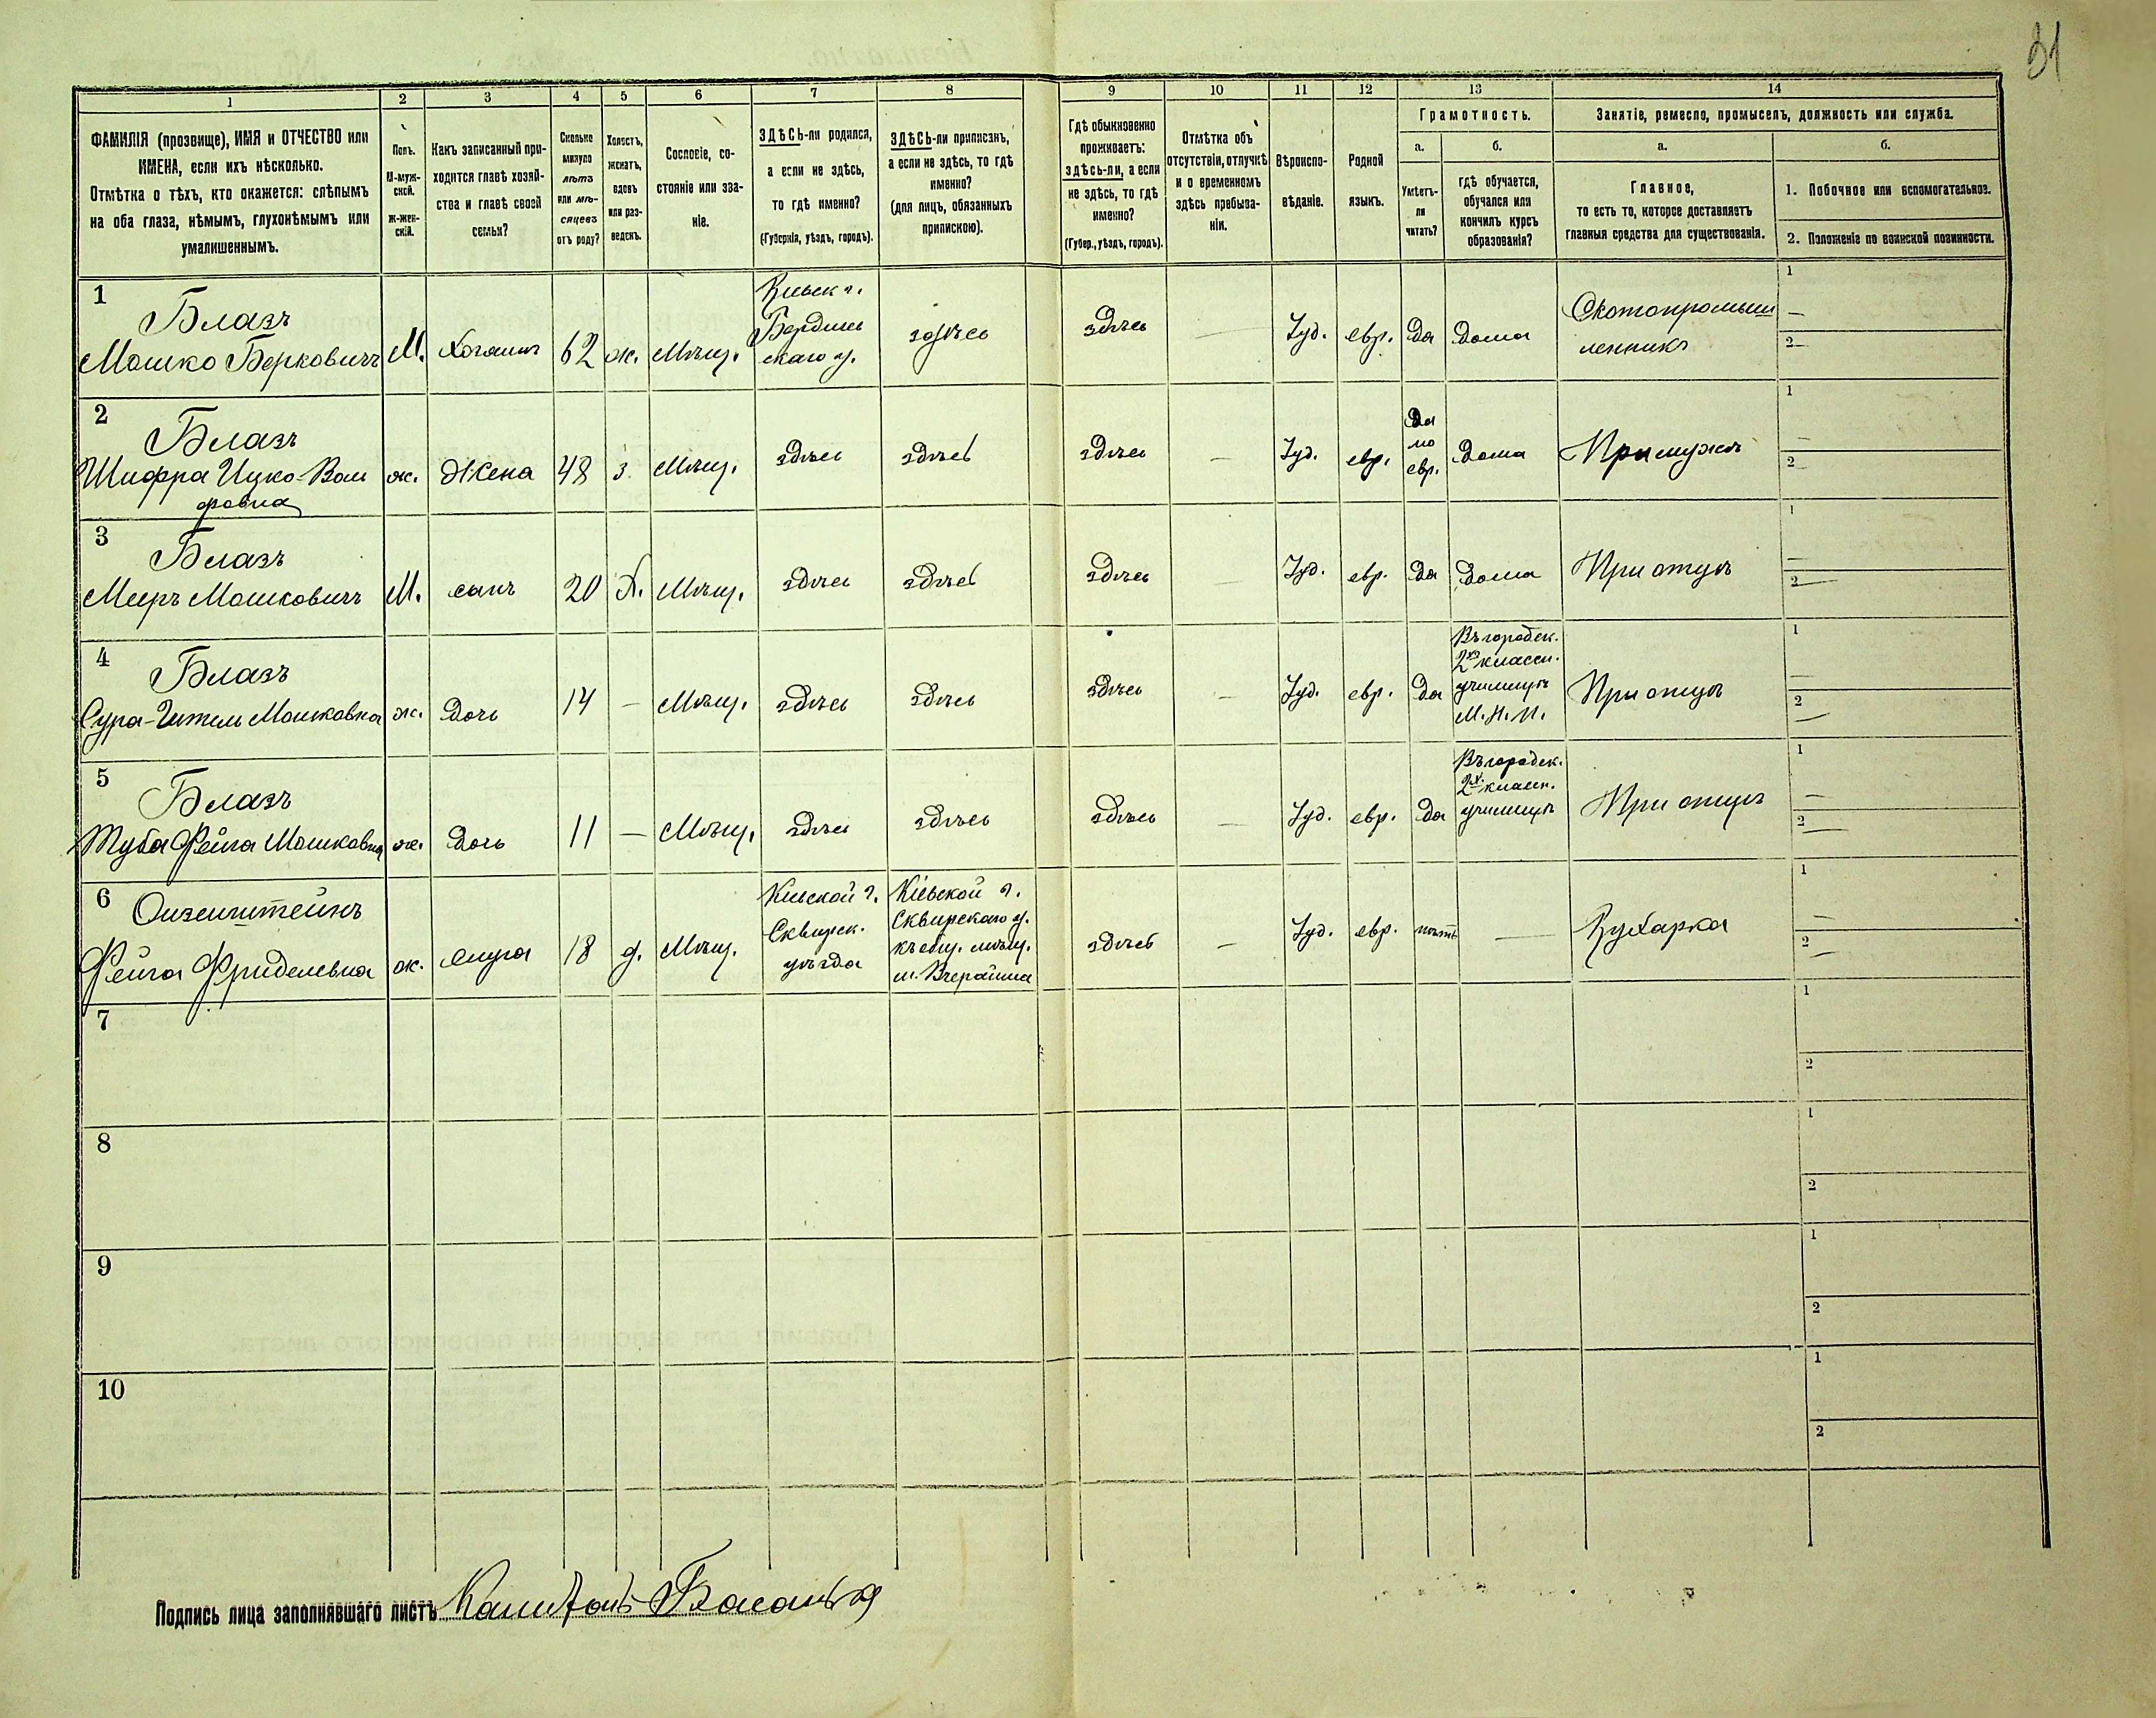 31
1 2 3 4 5 6 7 8 9 10 11 12 13 14
ФАМИЛІЯ (прозвище), ИМЯ и ОТЧЕСТВО или
ИМЕНА, если ихъ нѣсколько.
Отмѣтка о тѣхъ, кто окажется: слѣпымъ
на оба глаза, нѣмымъ, глухонѣмымъ или
умалишеннымъ.
Полъ.
М-муж-
ской.
Ж-жен-
скій.
Какъ записанный при-
ходится главѣ хозяй-
ства и главѣ своей
семьи?
Сколько
минуло
лѣтъ
или мѣ-
сяцевъ
отъ роду?
Холостъ,
женатъ,
вдовъ
или раз-
веденъ.
Сословіе, со-
стояніе или зва-
ніе.
ЗДѢСЬ-ли родился,
а если не здѣсь,
то гдѣ именно?
(Губернія, уѣздъ, городъ).
ЗДѢСЬ-ли приписанъ,
а если не здѣсь, то гдѣ
именно?
(для лицъ, обязанныхъ
припискою).
Гдѣ обыкновенно
проживаетъ:
здѣсь-ли, а если
не здѣсь, то гдѣ
именно?
(Губер., уѣздъ, городъ).
Отмѣтка объ
отсутствіи, отлучкѣ
и о временномъ
здѣсь пребыва-
ніи.
Вѣроиспо-
вѣданіе.
Родной
языкъ.
Грамотность.
а.
Умѣетъ-
ли
читать?
б.
гдѣ обучается,
обучался или
кончилъ курсъ
образованія?
Занятіе, ремесло, промыселъ, должность или служба.
а.
Главное,
то есть то, которое доставляетъ
главныя средства для существованія.
б.
1. Побочное или вспомогательное.
2. Положеніе по воинской повинности.
1
Блазъ
Мошко Берковичъ
М.
Хозяинъ
62
ж.
Мѣщ.
Кіевск г.
Бердичев
скаго у.
здѣсь
здѣсь
—
Іуд.
евр.
да
дома
Скотопромыш
ленникъ
1
—
2 —
2
Блазъ
Шифра Ицко-Воль
фовна
ж.
Жена
48
з.
Мѣщ.
здѣсь
здѣсь
здѣсь
—
Іуд.
евр.
да
по
евр.
дома
При мужѣ
1
—
2 —
3
Блазъ
Мееръ Мошковичъ
М.
сынъ
20
Х.
Мѣщ.
здѣсь
здѣсь
здѣсь
—
Іуд.
евр.
да
дома
При отцѣ
1
—
2 —
4
Блазъ
Сура-Гитель Мошковна
ж.
дочь
14
—
Мѣщ.
здѣсь
здѣсь
здѣсь
—
Іуд.
евр.
да
Въ городск.
2хъ классн.
училищѣ
М. Н. П.
При отцѣ
1
—
2
—
5
Блазъ
Туба Фейга Мошковна
ж.
дочь
11
—
Мѣщ.
здѣсь
здѣсь
здѣсь
—
Іуд.
евр.
да
Въ городск.
2х классн.
училищѣ
При отцѣ
1
—
2
—
6
Фейга Фриделевна
ж.
слуга
18
д.
Мѣщ.
Кіевской г.
Сквирск.
уѣзда
Кіевской г.
Сквирскаго у.
къ общ. мѣщ.
м. Вчерайша
здѣсь
—
Іуд.
евр.
нѣтъ
—
Кухарка
1
—
2
—
7
1
2
8
1
2
9
1
2
10
1
2
Подпись лица заполнявшаго листъ Капитонъ